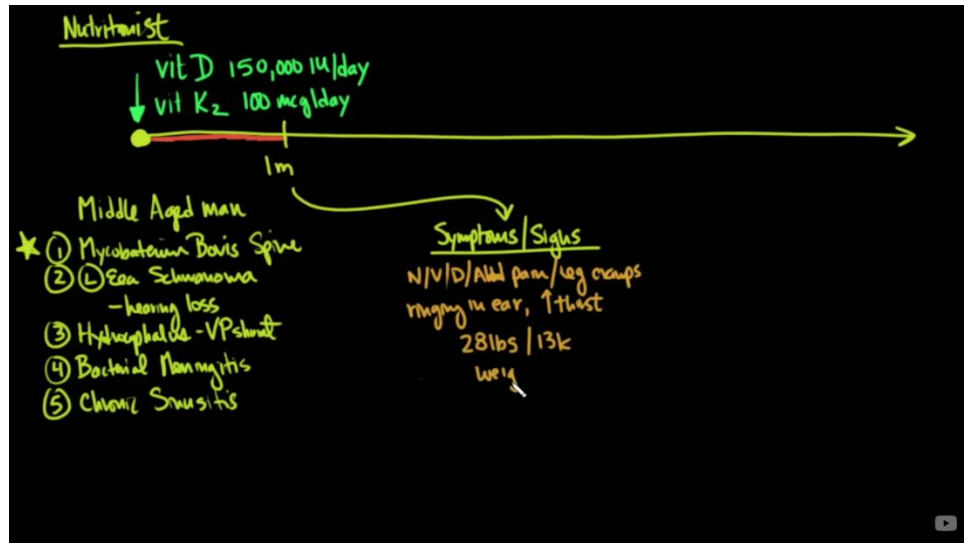 Nutritonist
vit D 150,000 IU/day
vit K2 100 mcg/day
1m
Middle Aged man
① Mycobaterium Bovis Spine
② Ⓛ Ear Schwanoma
- hearing loss
③ Hydrocephalus - VP shunt
④ Bacterial Meningitis
⑤ Chronic Sinusitis
Symptoms/Signs
N/V/D/Abd pain/leg cramps
ringing in ear, ↑thirst
28lbs / 13k
weig